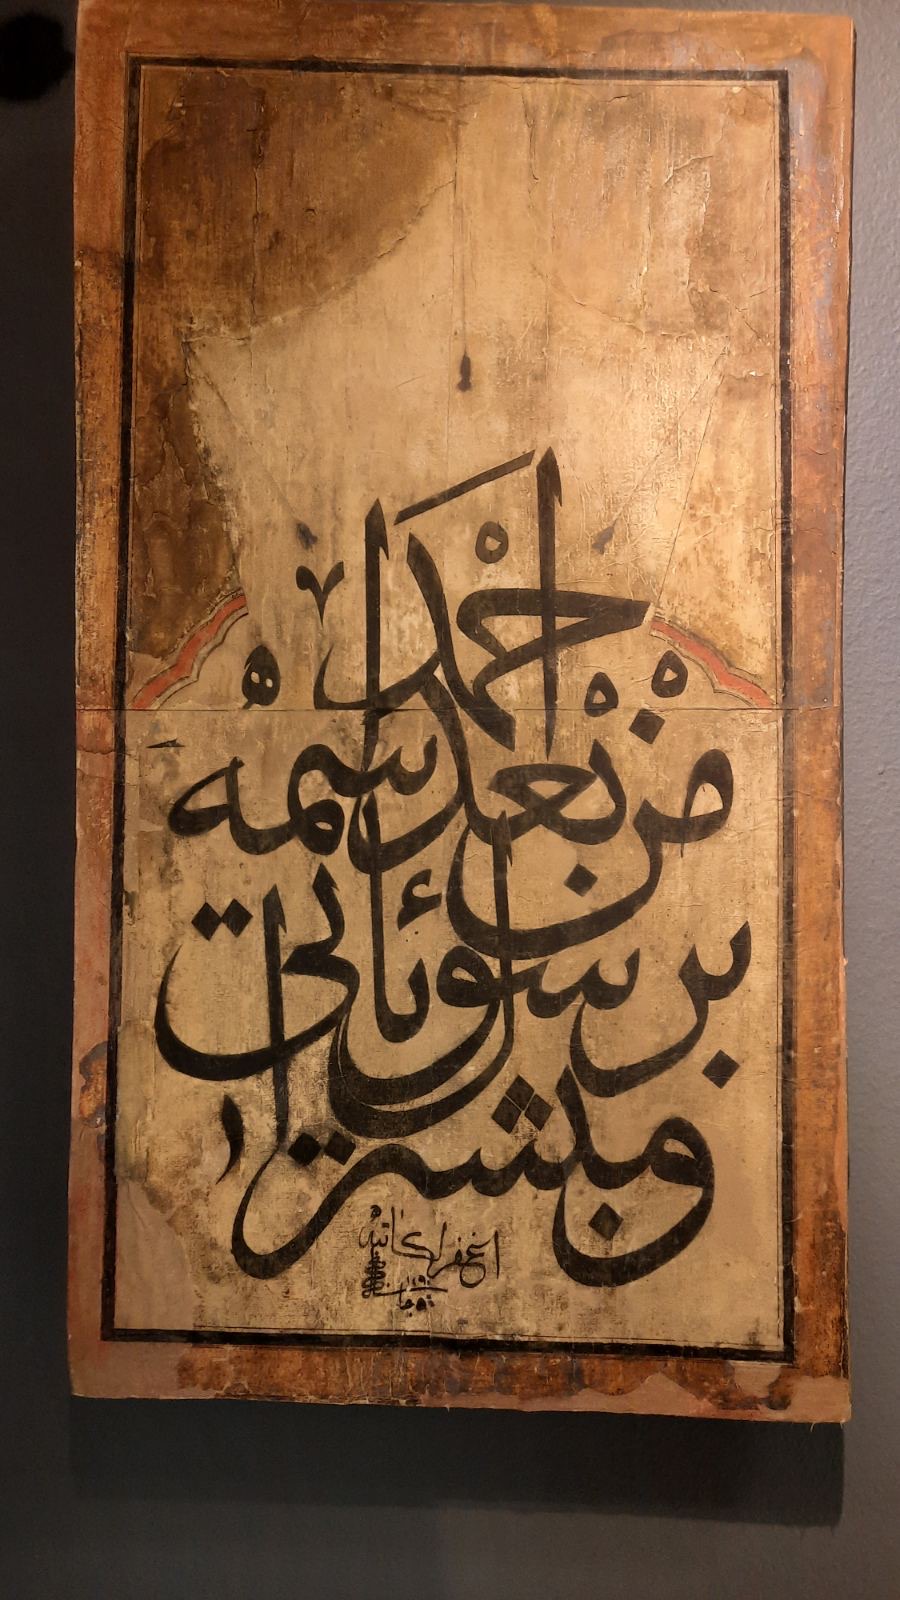 ومبشرا
برسول يأتي
من بعدي اسمه
احمد
اغفر لكاتبه